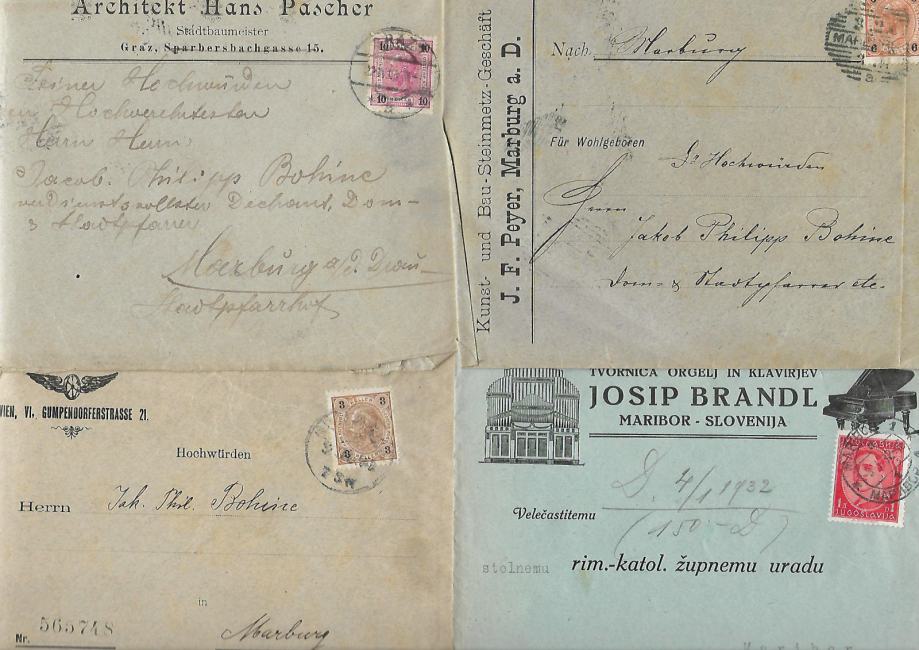 Architekt Hans Pascher
Stadtbaumeister
Graz, Sparbersbachgasse 15.
10 10
10 10
Seiner Hochwürden
Hochverehrtesten
Herrn Herrn
Jacob Philipp Bohinc
verdienstvollster Dechant, Dom-
& Stadtpfarrer
Marburg a/d. Drau
Stadtpfarrhof
Kunst- und Bau-Steinmetz-Geschäft
J. F. Peyer, Marburg a. D.
Nach Marburg
6 6
Für Wohlgeboren
Sr Hochwürden
Herrn
Jakob Philipp Bohinc
Dom- & Stadtpfarrer etc.
WIEN, VI., GUMPENDORFERSTRASSE 21.
3 3
3 3
Hochwürden
Herrn Jak. Phil. Bohinc
in
Nr. 565748
Marburg
TVORNICA ORGELJ IN KLAVIRJEV
JOSIP BRANDL
MARIBOR - SLOVENIJA
JUGOSLAVIJA
D. 4/1 1932
(150 - D)
Velečastitemu
stolnemu rim.-katol. župnemu uradu
Maribor